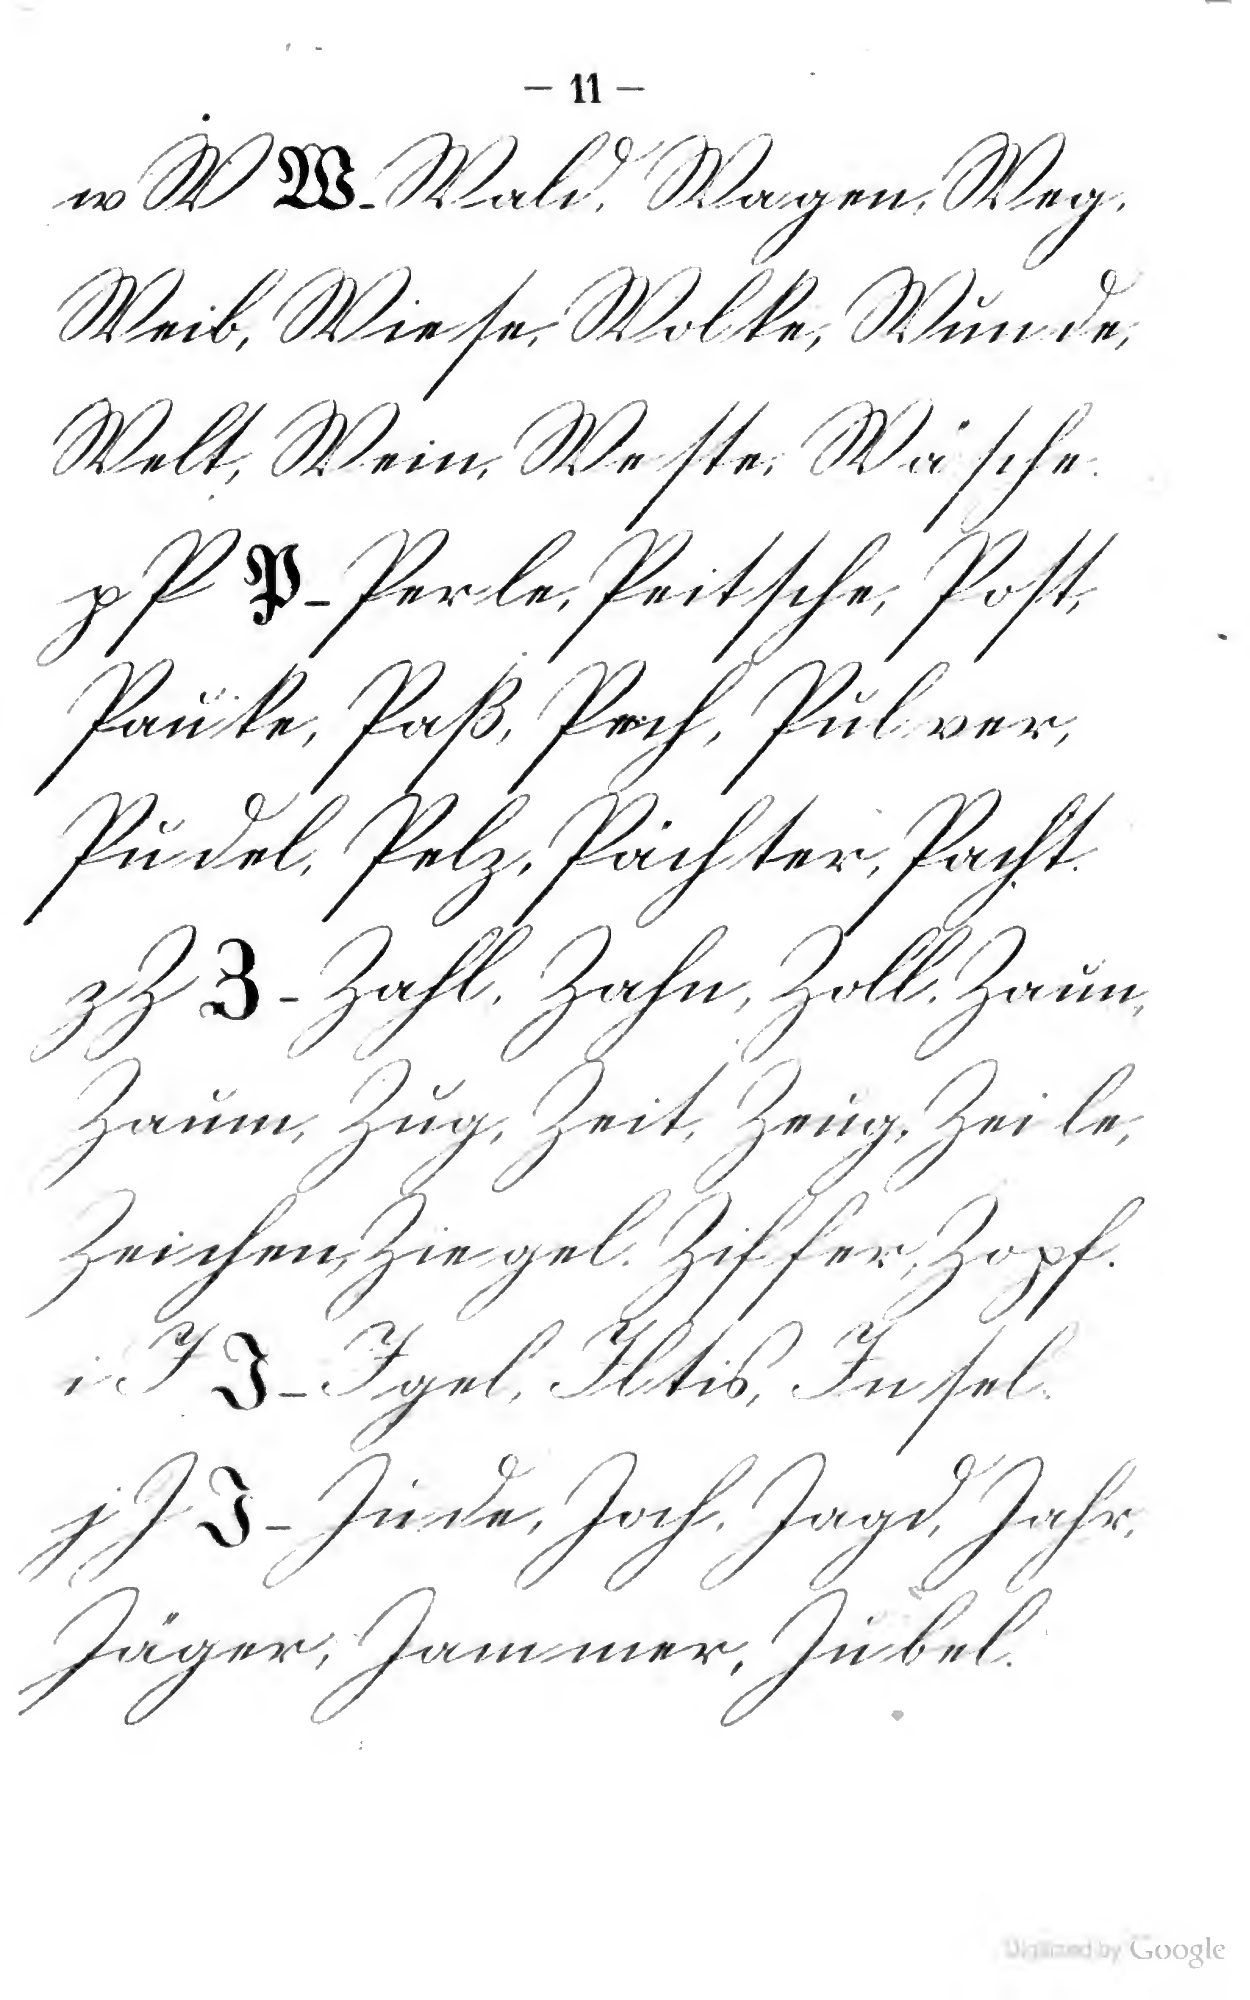 — 11 —
w W 𝔚 – Wald, Wagen, Weg,
Weib, Wiese, Wolke, Wunde,
Welt, Wein, Weste, Wäsche.
p P 𝔓 – Perle, Peitsche, Post,
Pauke, Paß, Pech, Pulver,
Pudel, Pelz, Pächter, Pacht.
z Z ℨ – Zahl, Zahn, Zoll, Zaun,
Zaum, Zug, Zeit, Zeug, Zeile,
Zeichen, Ziegel, Ziffer, Zopf.
i I ℑ – Igel, Iltis, Insel.
j J 𝔍 – Jude, Joch, Jagd, Jahr,
Jäger, Jammer, Jubel.
Digitized by Google